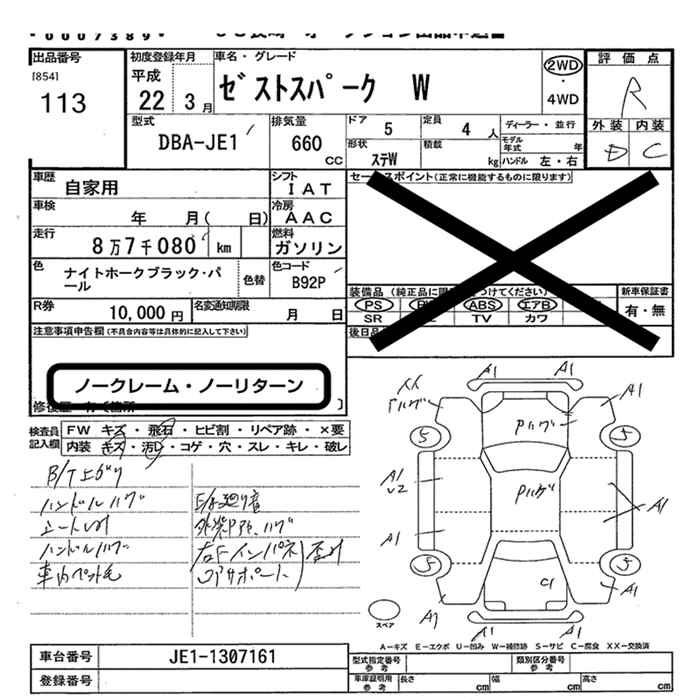 * 0 0 0 7 3 8 9 *
出品番号 初度登録年月 車名・グレード 評価点
[854] 平成
113 22 3月 ゼストスパーク W 2WD ・ 4WD R
型式 排気量 ドア 定員 ディーラー・並行 外装 内装
DBA-JE1 660 CC 5 4人 モデル年式 年 D C
形状 積載
ステW kg ハンドル 左・右
車歴 自家用 シフト IAT セールスポイント(正常に機能するものに限ります)
車検 年 月( 日) 冷房 AAC
走行 8万7千080 km 燃料 ガソリン
色 ナイトホークブラック・パール 色替 色コード B92P
装備品 新車保証書
PS ABS エアB
SR TV カワ 有・無
R券 10,000円 名変通期限 月 日
注意事項申告欄(不具合内容等は具体的に記入して下さい)
ノークレーム・ノーリターン
検査員記入欄 FW キズ・飛石・ヒビ割・リペア跡・×要
内装 キズ・汚レ・コゲ・穴・スレ・キレ・破レ
ハンドルハゲ
ハンドルハゲ
車内ペット毛
右Fインパネ
A1 A1
A1
5 5
A1
U2
A1
A1
5 5
C1
A1
スペア
A1
A-キズ E-エクボ U-凹み W-補修跡 S-サビ C-腐食 XX-交換済
車台番号 JE1-1307161 型式指定番号参考 類別区分番号参考
登録番号 車庫証明用参考 長さ cm 幅 cm 高さ cm